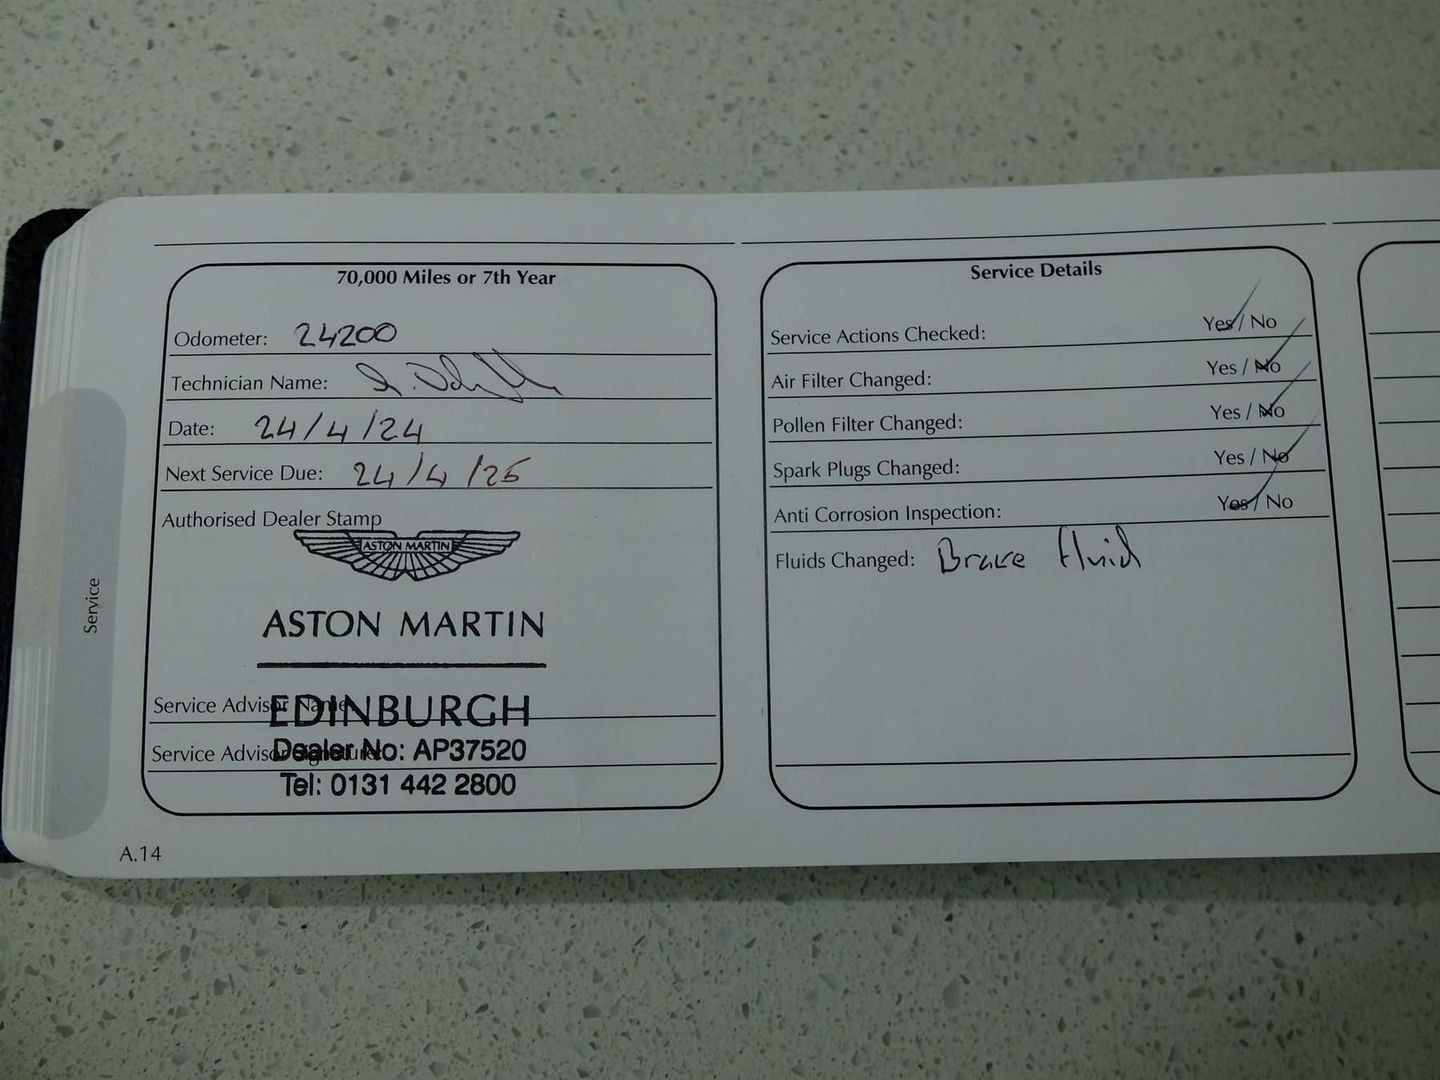 70,000 Miles or 7th Year
Odometer: 24200
Technician Name:
Date: 24/4/24
Next Service Due: 24/4/25
Authorised Dealer Stamp
ASTON MARTIN
ASTON MARTIN
EDINBURGH
Service Advisor Name:
Dealer No: AP37520
Service Advisor Signature:
Tel: 0131 442 2800
Service
A.14
Service Details
Service Actions Checked: Yes / No
Air Filter Changed: Yes / No
Pollen Filter Changed: Yes / No
Spark Plugs Changed: Yes / No
Anti Corrosion Inspection: Yes / No
Fluids Changed: Brake fluid